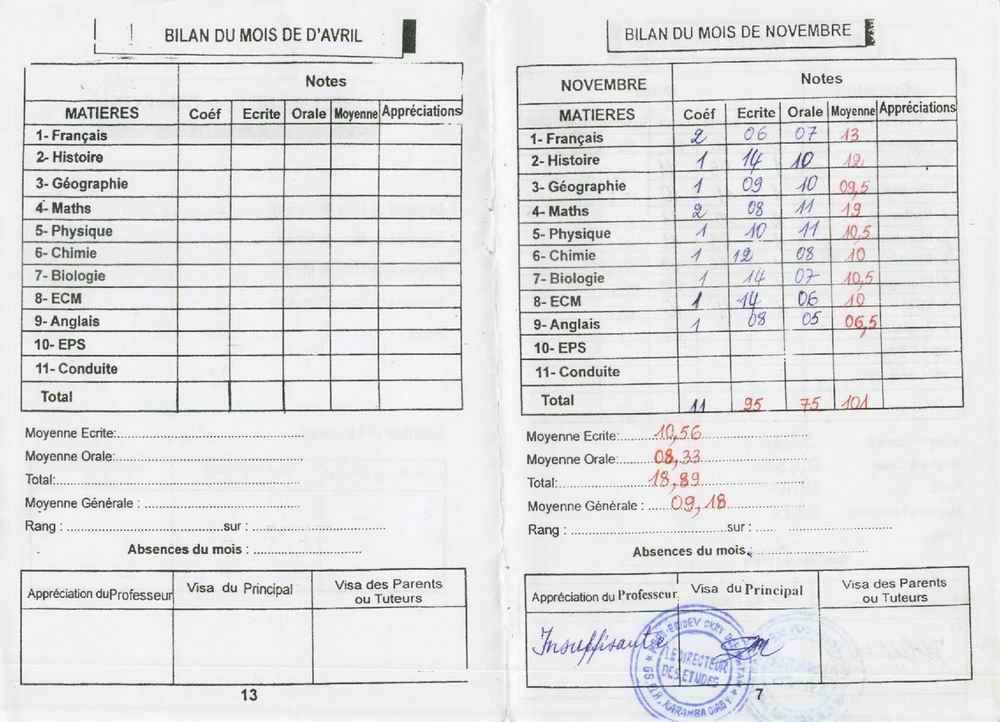 BILAN DU MOIS DE D'AVRIL
Notes
MATIERES Coéf Ecrite Orale Moyenne Appréciations
1- Français
2- Histoire
3- Géographie
4- Maths
5- Physique
6- Chimie
7- Biologie
8- ECM
9- Anglais
10- EPS
11- Conduite
Total
Moyenne Ecrite:
Moyenne Orale:
Total:
Moyenne Générale :
Rang : sur :
Absences du mois :
Appréciation du Professeur Visa du Principal Visa des Parents
ou Tuteurs
13
BILAN DU MOIS DE NOVEMBRE
NOVEMBRE Notes
MATIERES Coéf Ecrite Orale Moyenne Appréciations
1- Français 2 06 07 13
2- Histoire 1 14 10 12
3- Géographie 1 09 10 09,5
4- Maths 2 08 11 19
5- Physique 1 10 11 10,5
6- Chimie 1 12 08 10
7- Biologie 1 14 07 10,5
8- ECM 1 14 06 10
9- Anglais 1 08 05 06,5
10- EPS
11- Conduite
Total 11 95 75 101
Moyenne Ecrite: 10,56
Moyenne Orale: 08,33
Total: 18,89
Moyenne Générale : 09,18
Rang : sur :
Absences du mois
Appréciation du Professeur Visa du Principal Visa des Parents
ou Tuteurs
Insuffisante
LE DIRECTEUR
DES ETUDES
KARAMBA DIABY
7